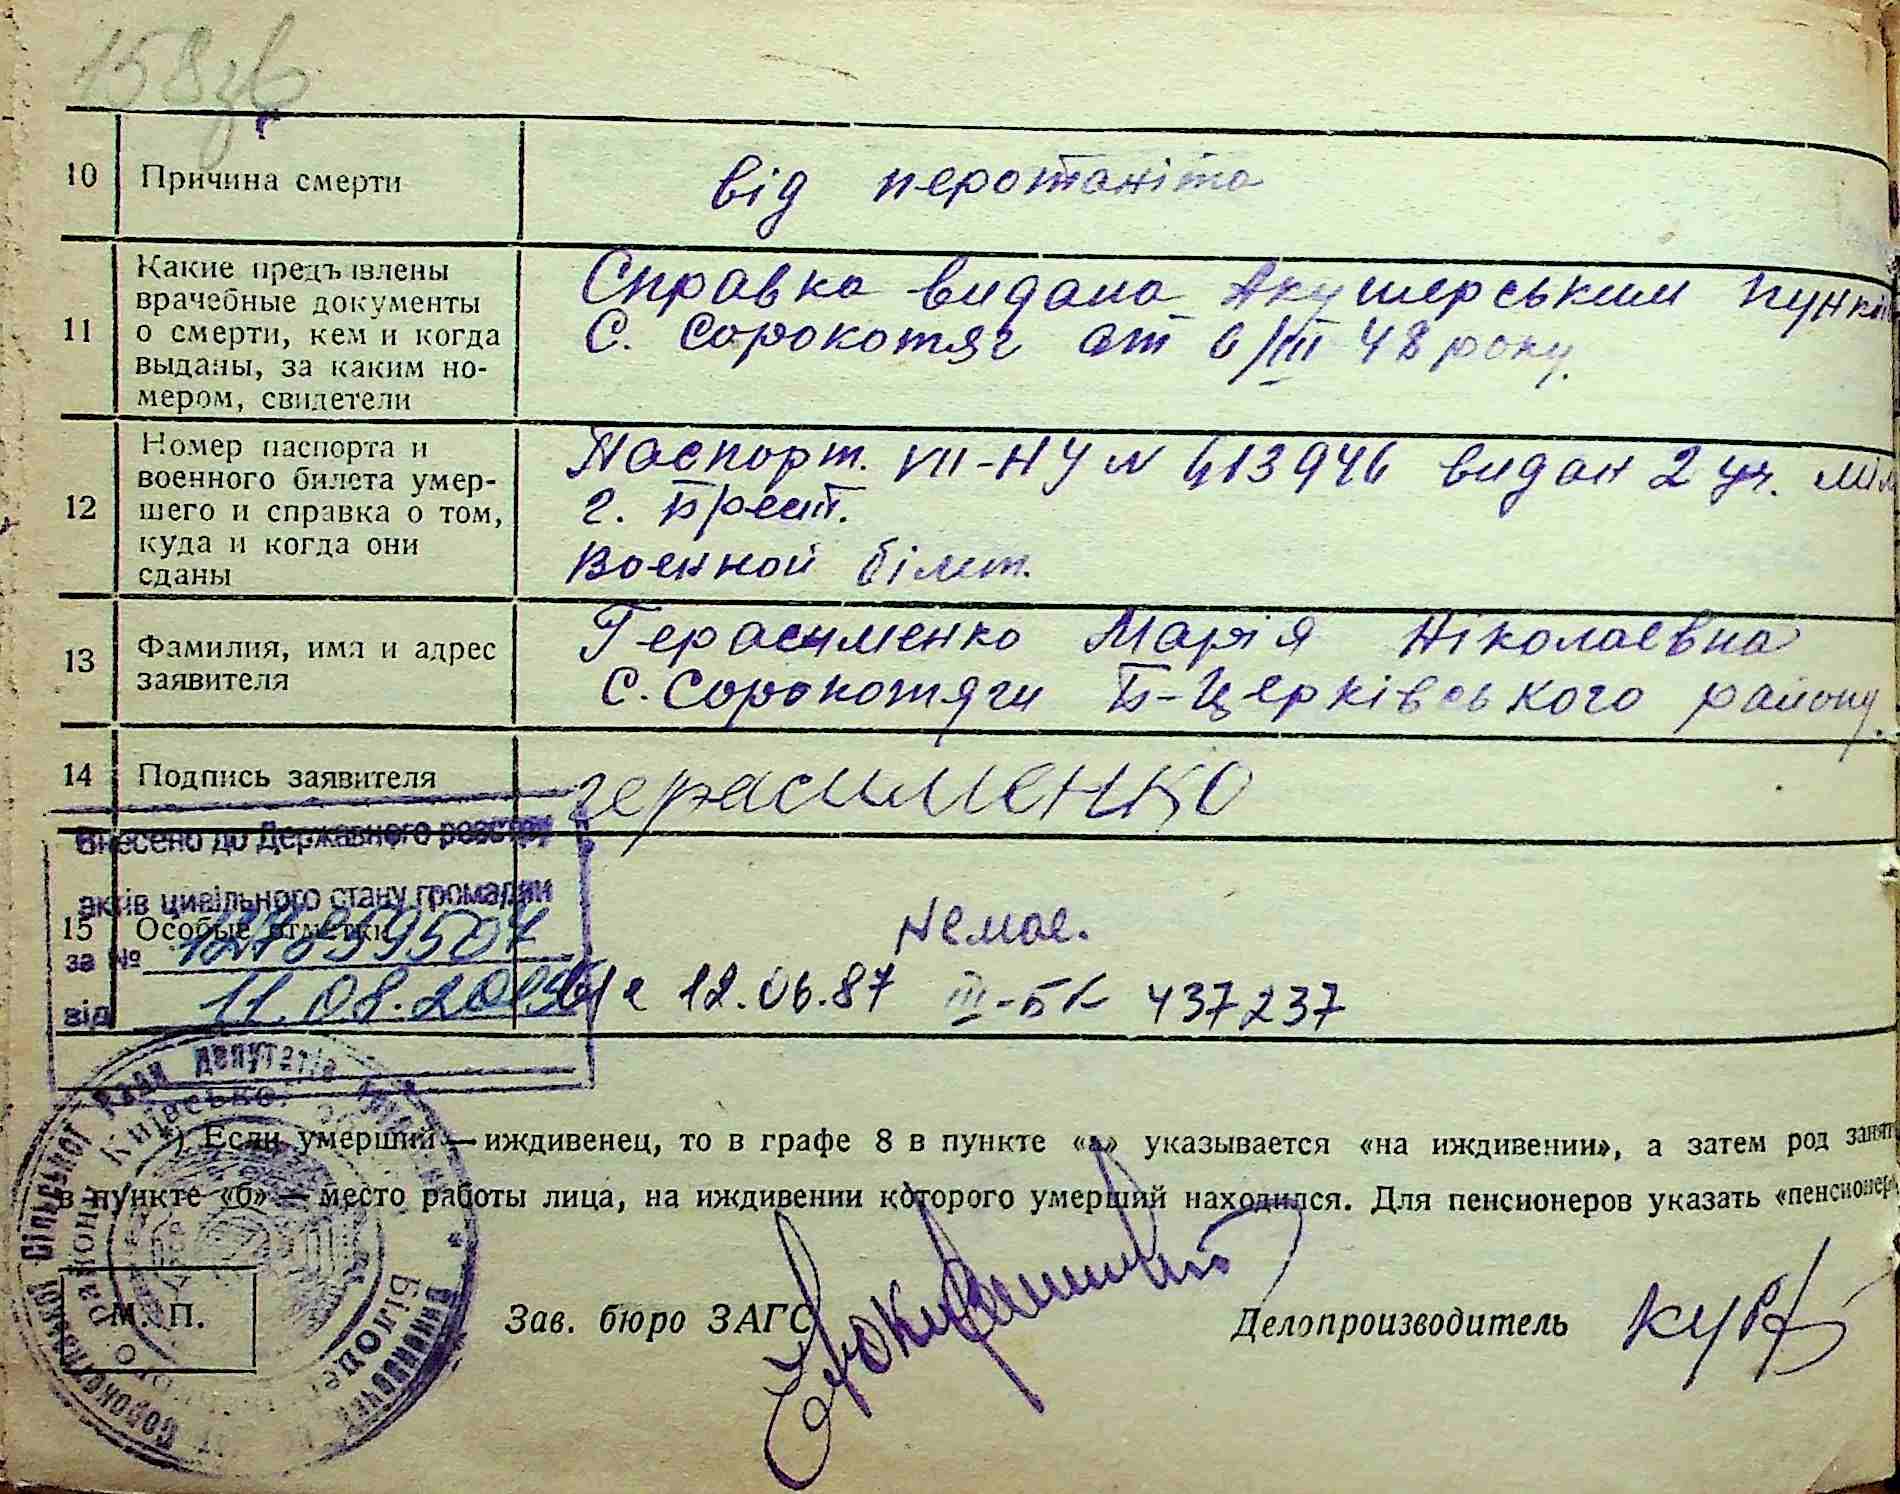 158зв
10 Причина смерти
від перотаніта
11 Какие предъявлены
врачебные документы
о смерти, кем и когда
выданы, за каким но-
мером, свидетели
Справка видана Акушерським пункт
С. Сорокотяг от 6/III 48 року.
12 Номер паспорта и
военного билета умер-
шего и справка о том,
куда и когда они
сданы
Паспорт. VII-НУ № 613946 видан 2 уч. міл
г. Брест.
Военной білет.
13 Фамилия, имя и адрес
заявителя
Герасименко Марія Ніколаєвна
С. Сорокотяги Б-Церківського району.
14 Подпись заявителя
герасименко
Внесено до Державного реєстру
актів цивільного стану громадян
15 Особые отметки
Немає.
за №
від 11.08.20
12.06.87 III-БК 437237
*) Если умерший — иждивенец, то в графе 8 в пункте «а» указывается «на иждивении», а затем род занят
в пункте «б» — место работы лица, на иждивении которого умерший находился. Для пенсионеров указать «пенсионер
М. П.
Зав. бюро ЗАГС
Делопроизводитель
Сільської Ради депутатів
Київської
району
Білоцер